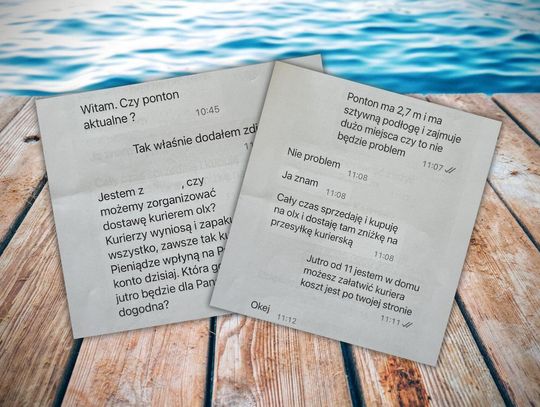 Witam. Czy ponton
aktualne ?
10:45
Tak właśnie dodałem
Jestem z , czy
możemy zorganizować
dostawę kurierem olx?
Kurierzy wyniosą i
wszystko, zawsze tak
Pieniądze wpłyną na
konto dzisiaj. Która
jutro będzie dla
dogodna?
Ponton ma 2,7 m i ma
sztywną podłogę i zajmuje
dużo miejsca czy to nie
będzie problem
11:07
Nie problem
11:08
Ja znam
11:08
Cały czas sprzedaję i kupuję
na olx i dostaję tam zniżkę na
przesyłkę kurierską
11:08
Jutro od 11 jestem w domu
możesz załatwić kuriera
koszt jest po twojej stronie
11:11
Okej
11:12